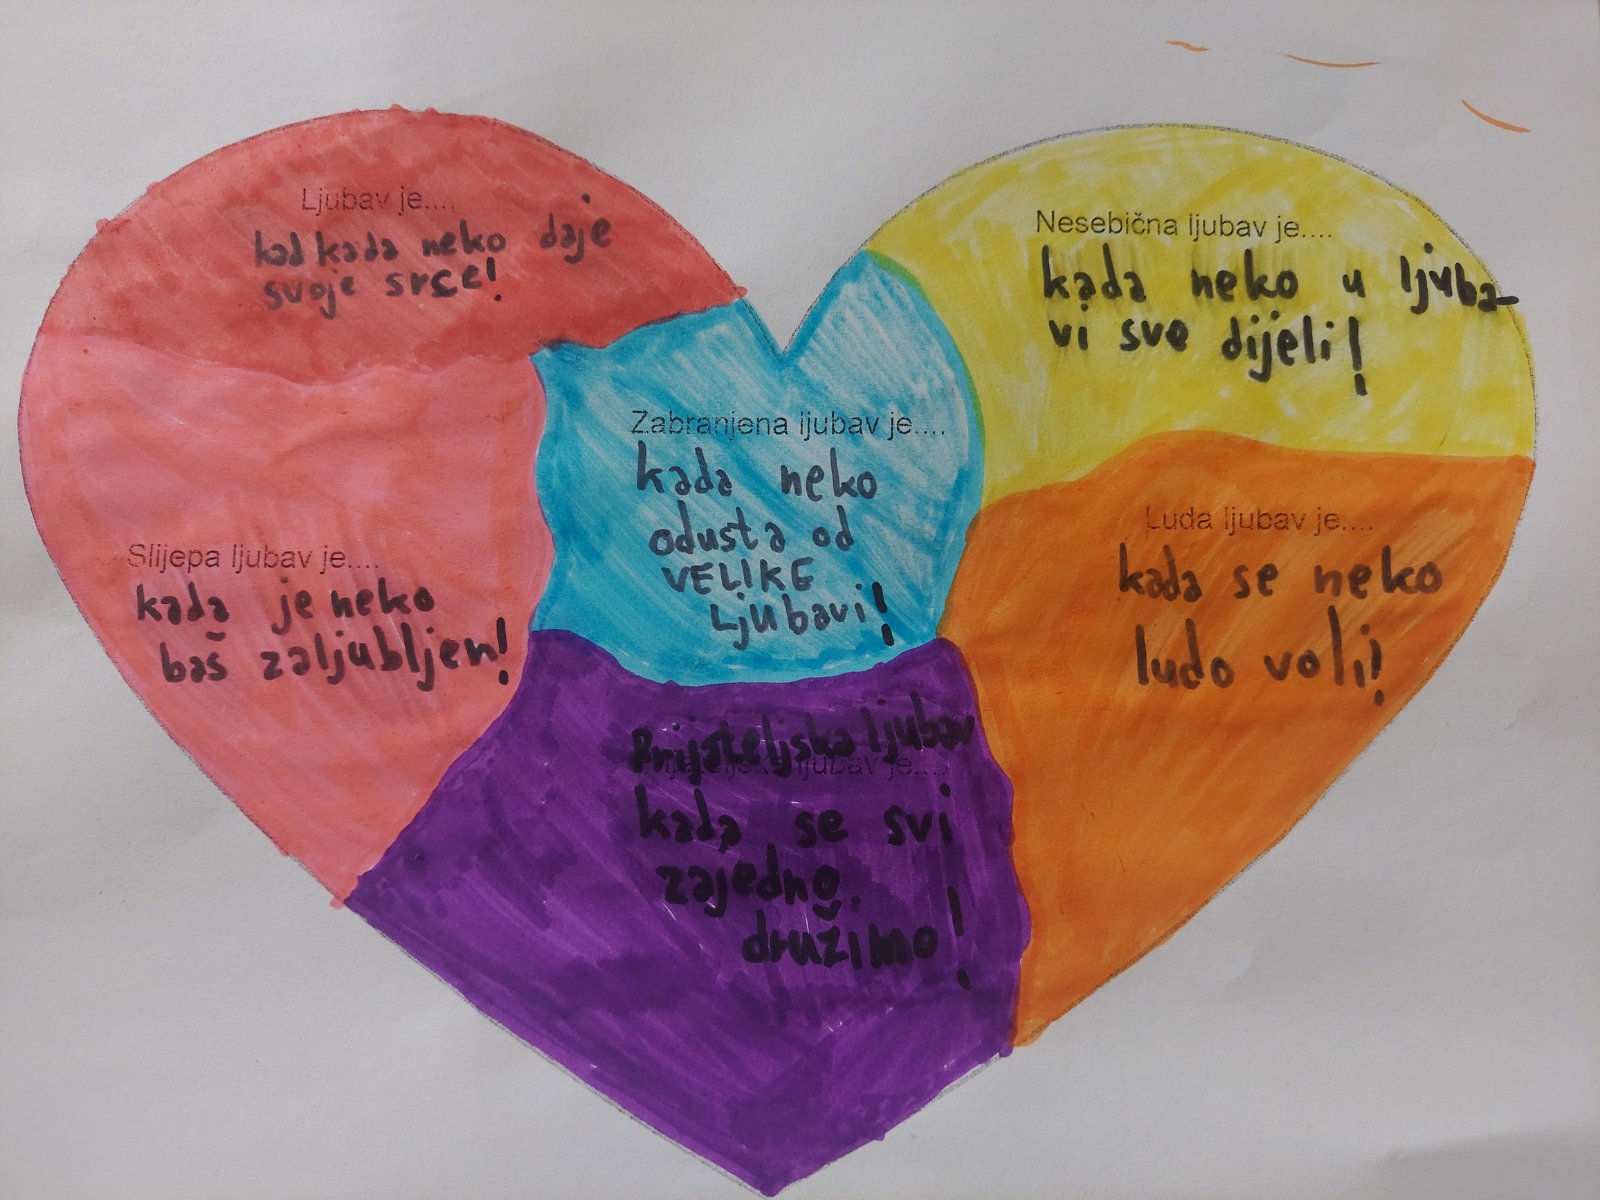 Ljubav je....
kad kada neko daje
svoje srce!
Nesebična ljubav je....
kada neko u ljuba-
vi sve dijeli!
Zabranjena ljubav je....
kada neko
odusta od
VELIKE
Ljubavi!
Luda ljubav je....
kada se neko
ludo voli!
Slijepa ljubav je....
kada je neko
baš zaljubljen!
Prijateljska ljubav
Prijateljska ljubav je....
kada se svi
zajedno
družimo!